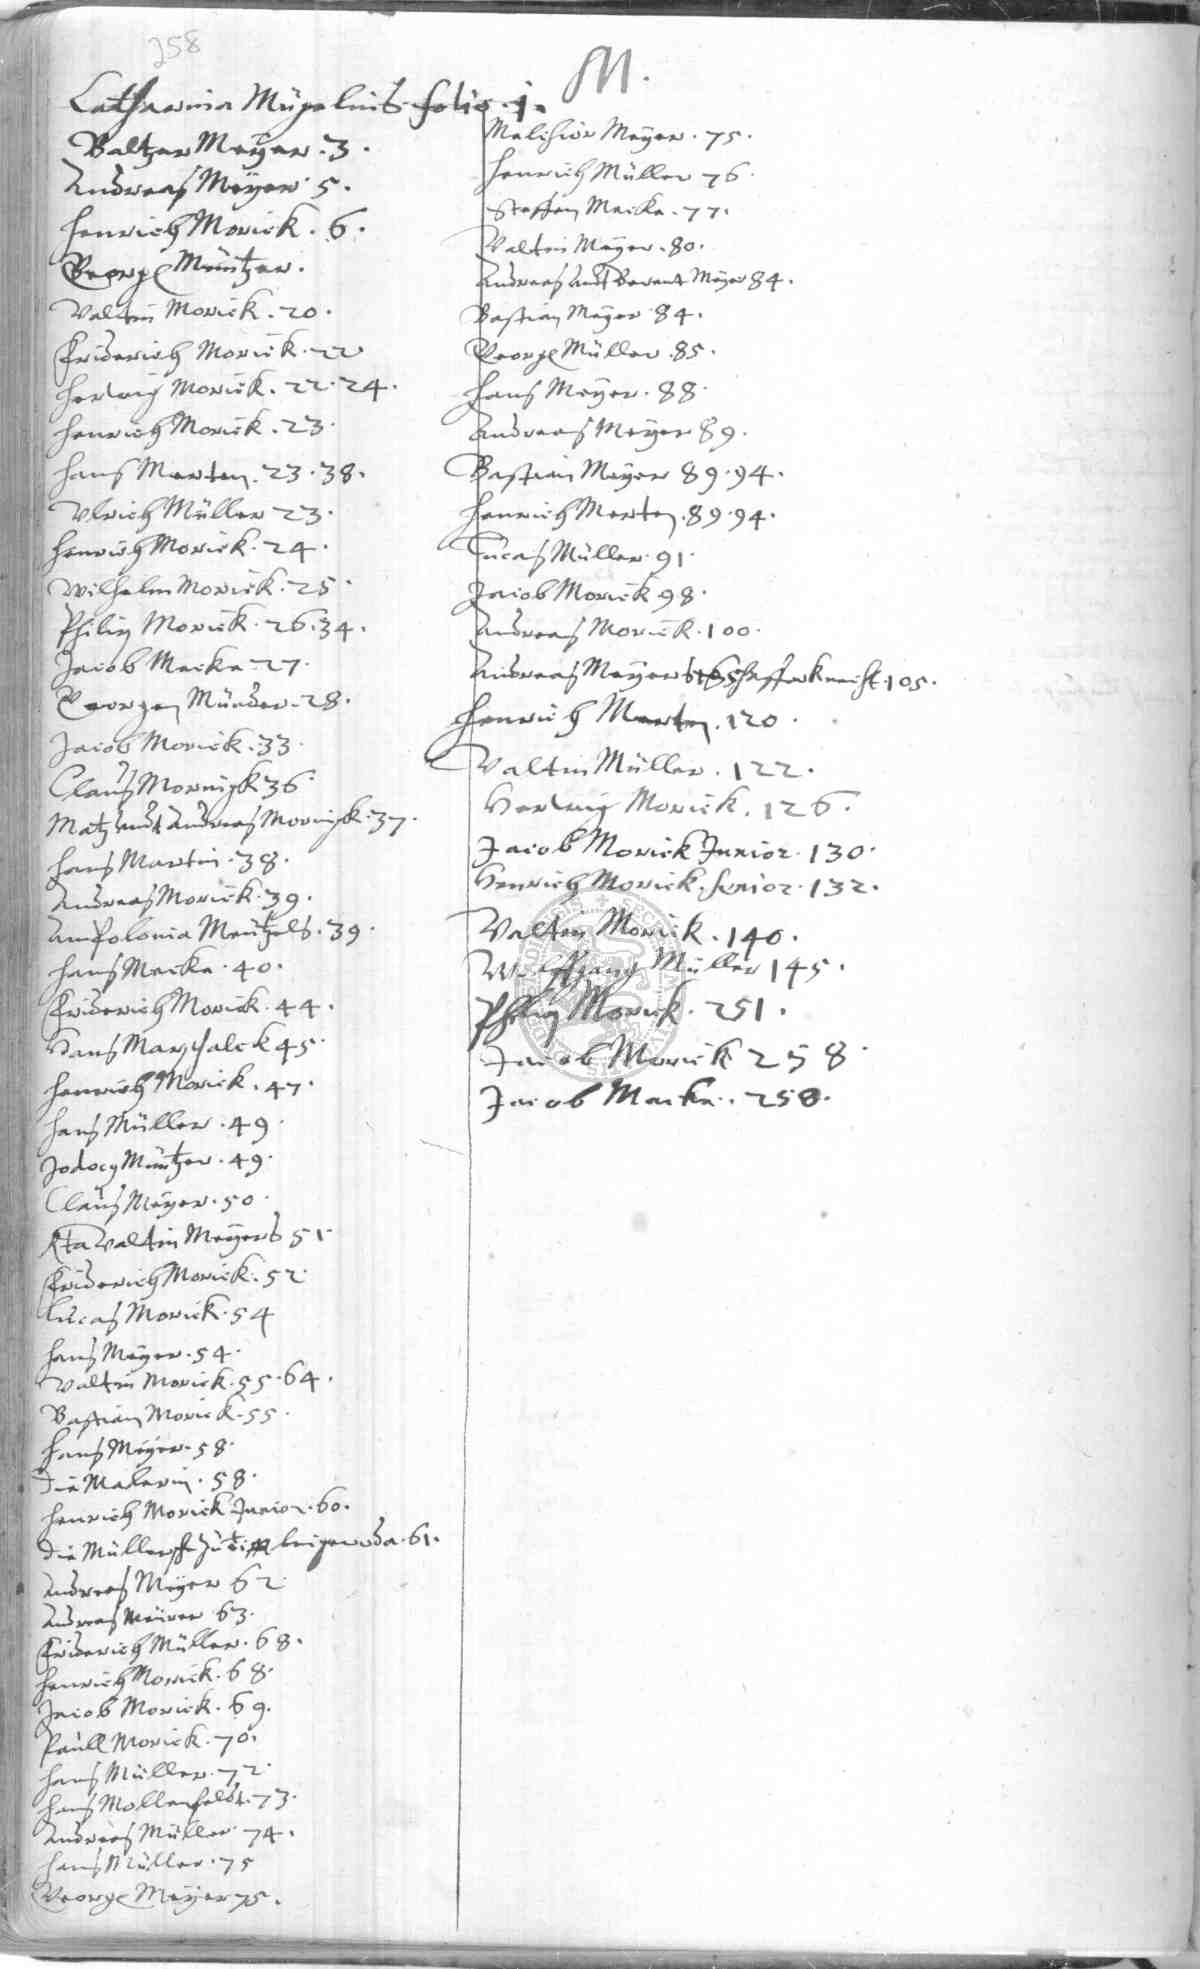 258
M.
Catharina Mügelins folio. 1.
Baltzer Meÿer. 3.
Andreas Meÿer 5.
Henrich Morick. 6.
George Müntzer.
Valtin Morick. 20.
Friderich Morick. 22
Herwig Morick. 22. 24.
Henrich Morick. 23.
Hans Merten. 23. 38.
Ulrich Müller 23.
Henrich Morick. 24.
Wilhelm Morick. 25.
Philip Morick. 26. 34.
Jacob Macke 27.
Georgen Münder. 28.
Jacob Morick. 33.
Claus Mornigk 36.
Matz und Andreas Mornigk. 37.
Hans Martin. 38.
Andreas Morick. 39.
Ampolonia Mentzels. 39.
Hans Macke. 40.
Friderich Morick. 44.
Hans Marschalck 45.
Henrich Morick. 47.
Hans Müller. 49.
Jodocq Müntzer. 49.
Claus Meÿer. 50.
Valtin Meÿers 51.
Friderich Morick. 52.
Lucas Morick. 54
Hans Meÿer. 54.
Valtin Morick. 55. 64.
Bastian Morick. 55.
Hans Meÿer. 58.
Die Malerin. 58.
Henrich Morick Junior. 60.
Die Müllersche zu 61.
Andreas Meÿer 62.
Andreas Meürer 63.
Friderich Müller. 68.
Henrich Morick. 68.
Jacob Morick. 69.
Paull Morick. 70.
Hans Müller. 72.
Hans Mollenfeldt. 73.
Andreas Müller 74.
Hans Müller. 75
George Meÿer 75.
Melchior Meÿer. 75.
Henrich Müller 76.
Steffen Macke. 77.
Valtin Meÿer. 80.
Andreas und Berent Meÿer 84.
Bastian Meÿer 84.
George Müller. 85.
Hans Meÿer. 88.
Andreas Meÿer 89.
Bastian Meÿer 89. 94.
Henrich Merten. 89. 94.
Lucas Müller. 91.
Jacob Morick 98.
Andreas Morick. 100.
Andreas Meÿer Schefferknecht. 105.
Henrich Merten. 120.
Valtin Müller. 122.
Herwig Morick. 126.
Jacob Morick Junior. 130.
Henrich Morick. senior. 132.
Valtin Morick. 140.
Wolffgang Müller 145.
Philip Morick. 251.
Jacob Morick 258.
Jacob Macke. 258.